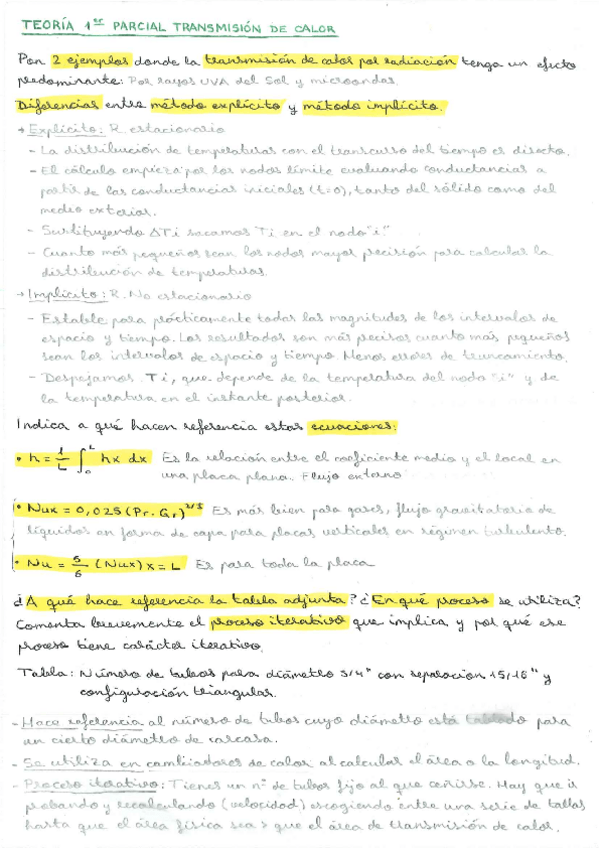 TEORÍA 1er PARCIAL TRANSMISIÓN DE CALOR
Pon 2 ejemplos donde la transmisión de calor por radiación tenga un efecto
predominante: Por rayos UVA del Sol y microondas.
Diferencias entre método explícito y método implícito.
→ Explícito: R. estacionario
- La distribución de temperaturas con el transcurso del tiempo es directo.
- El cálculo empieza por los nodos límite evaluando conductancias a
partir de las conductancias iniciales (t=0), tanto del sólido como del
medio exterior.
- Sustituyendo ΔTi sacamos Ti en el nodo "i"
- Cuanto más pequeños sean los nodos mayor precisión para calcular la
distribución de temperaturas.
→ Implícito: R. No estacionario
- Estable para prácticamente todas las magnitudes de los intervalos de
espacio y tiempo. Los resultados son más precisos cuanto más pequeños
sean los intervalos de espacio y tiempo. Menos errores de truncamiento.
- Despejamos Ti, que depende de la temperatura del nodo "i" y de
la temperatura en el instante posterior.
Indica a qué hacen referencia estas ecuaciones:
• h = 1/L ∫₀ᴸ hx dx Es la relación entre el coeficiente medio y el local en
una placa plana. Flujo externo
• Nux = 0,025 (Pr. Gr)^2/5 Es más bien para gases, flujo gravitatorio de
líquidos en forma de capa para placas verticales en régimen turbulento.
• Nu = 5/6 (Nux) x = L Es para toda la placa
¿A qué hace referencia la tabla adjunta? ¿En qué proceso se utiliza?
Comenta brevemente el proceso iterativo que implica y por qué ese
proceso tiene carácter iterativo.
Tabla: Número de tubos para diámetro 3/4" con separación 15/16" y
configuración triangular.
- Hace referencia al número de tubos cuyo diámetro está tablado para
un cierto diámetro de carcasa.
- Se utiliza en cambiadores de calor al calcular el área o la longitud.
- Proceso iterativo: Tienes un nº de tubos fijo al que ceñirse. Hay que ir
probando y recalculando (velocidad) escogiendo entre una serie de tablas
hasta que el área física sea > que el área de transmisión de calor.